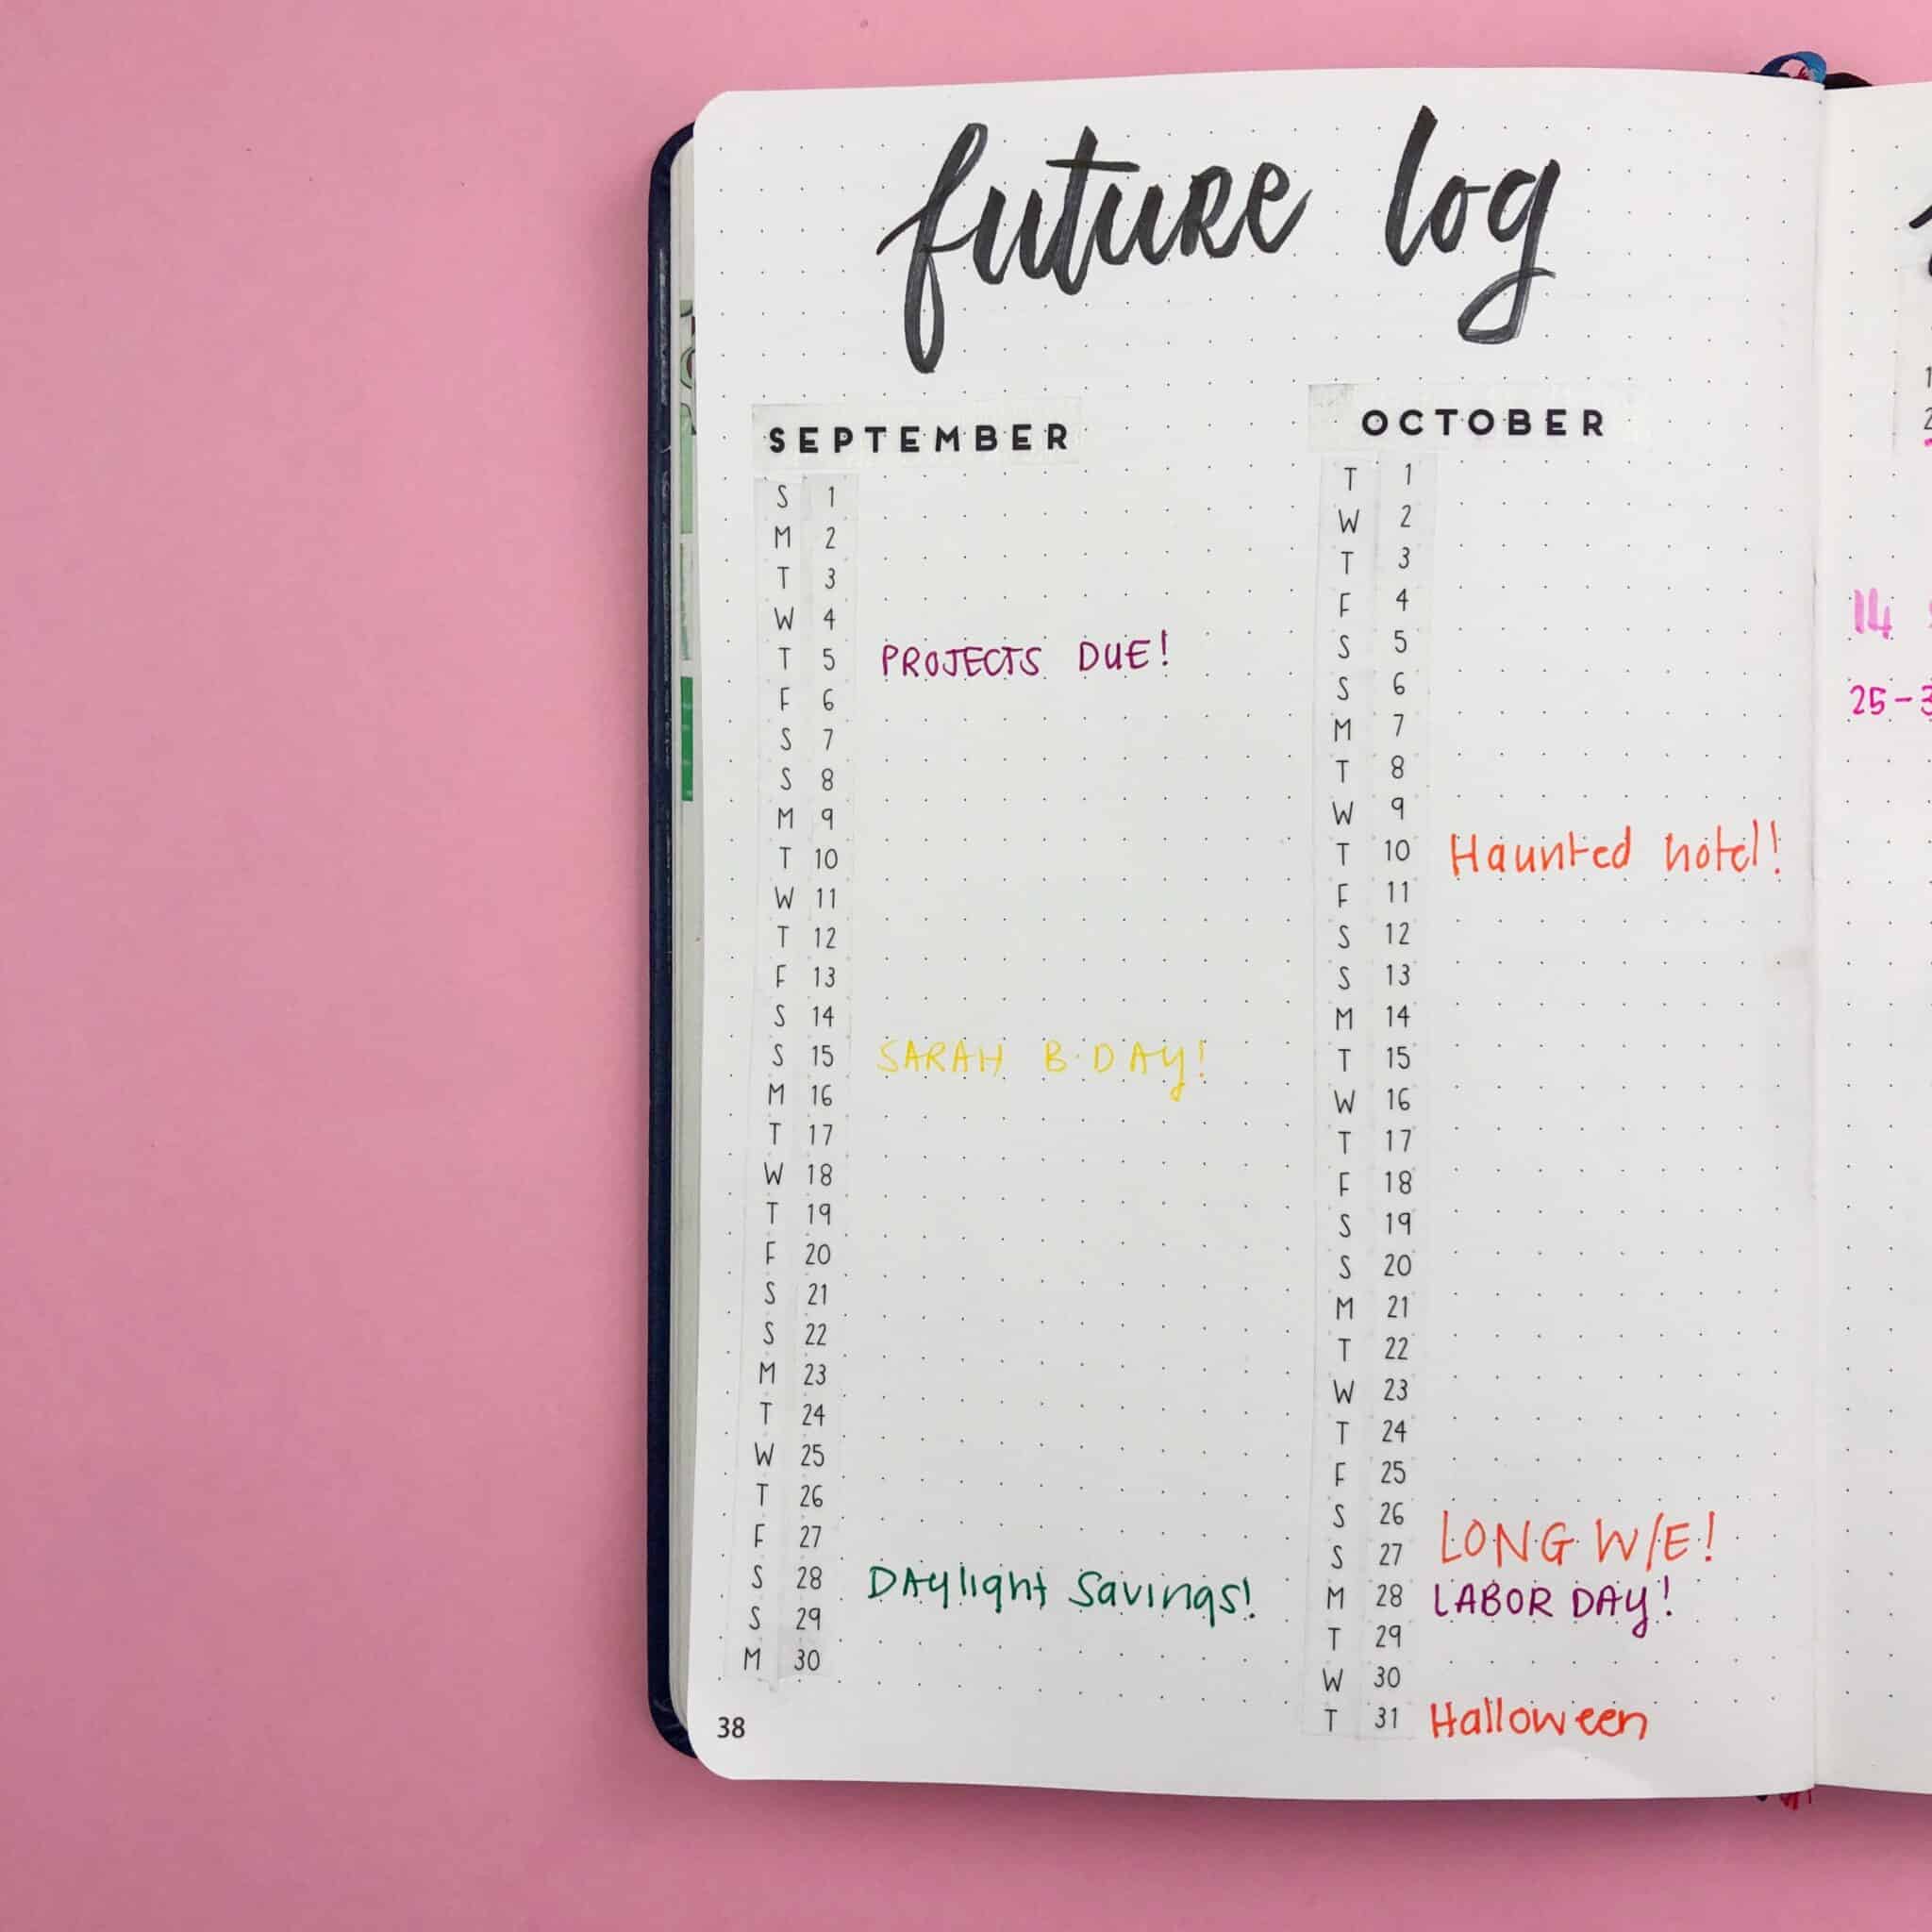 future log
SEPTEMBER
S 1
M 2
T 3
W 4
T 5 PROJECTS DUE!
F 6
S 7
S 8
M 9
T 10
W 11
T 12
F 13
S 14
S 15 SARAH B DAY!
M 16
T 17
W 18
T 19
F 20
S 21
S 22
M 23
T 24
W 25
T 26
F 27
S 28 DAylight Savings!
S 29
M 30
38
OCTOBER
T 1
W 2
T 3
F 4
S 5
S 6
M 7
T 8
W 9
T 10 Haunted hotel!
F 11
S 12
S 13
M 14
T 15
W 16
T 17
F 18
S 19
S 20
M 21
T 22
W 23
T 24
F 25
S 26
LONG W/E!
S 27
M 28 LABOR DAY!
T 29
W 30
T 31 Halloween
14